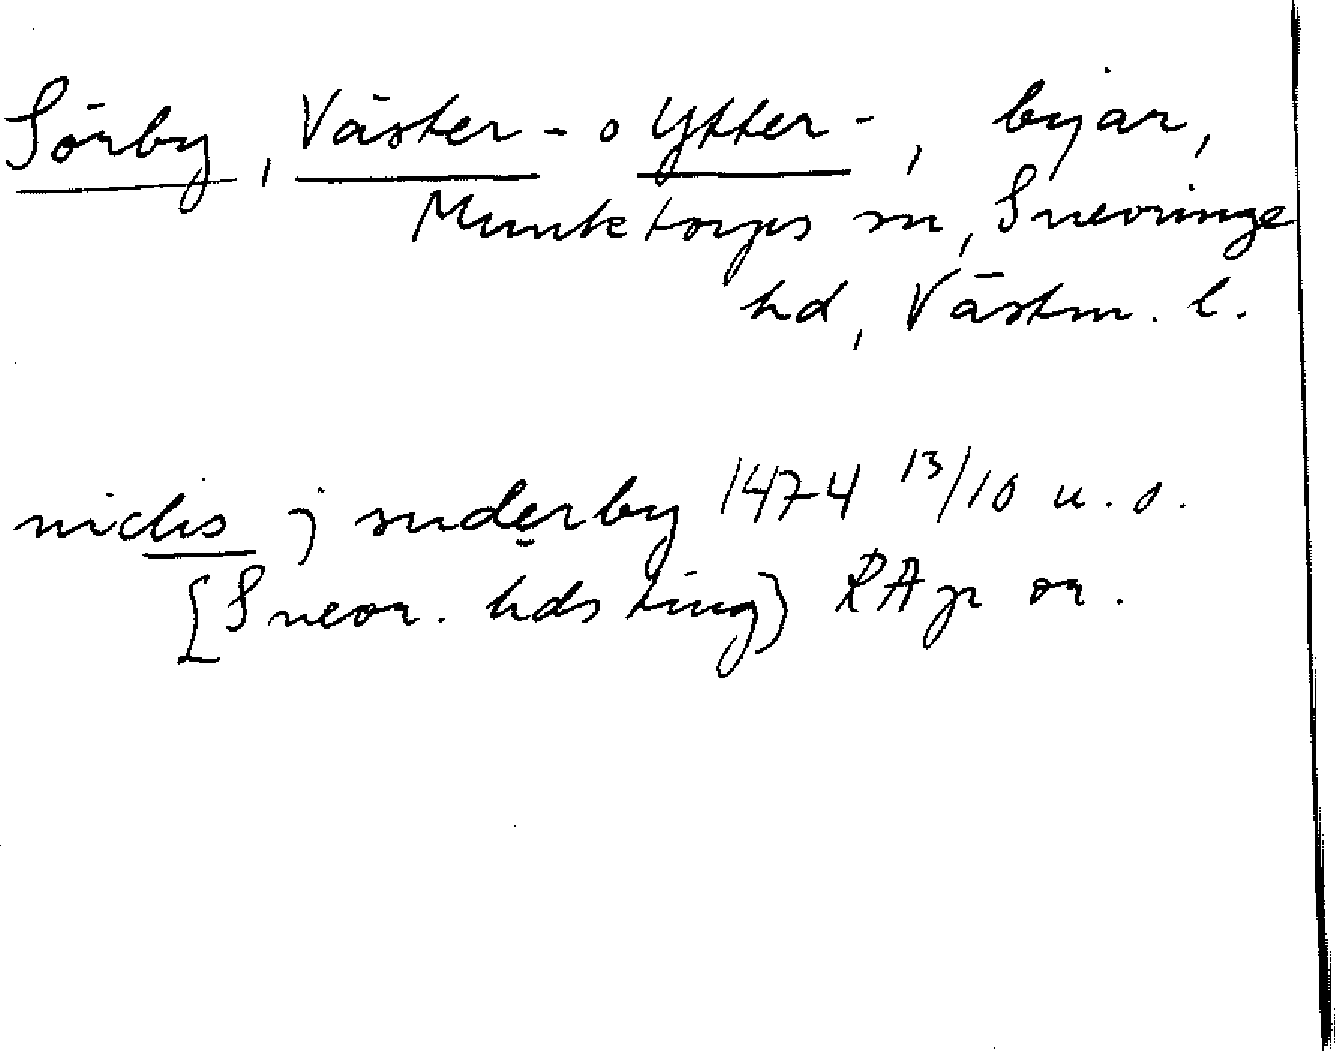 Sörby, Väster- o Ytter-, byar,
Munktorps sn, Snevringe
hd, Västm. l.
niclis j suderby 1474 13/10 u. o.
[Snevr. hds ting) RAp or.